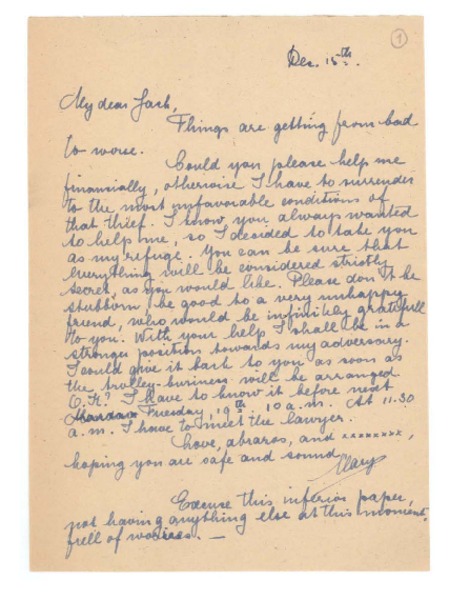 1
Dec. 15th.
My dear Jack,
Things are getting from bad
to worse.
Could you please help me
financially, otherwise I have to surrender
to the most unfavorable conditions of
that thief. I know you always wanted
to help me, so I decided to take you
as my refuge. You can be sure that
everything will be considered strictly
secret, as you would like. Please don't be
stubborn, be good to a very unhappy
friend, who would be infinitely gratefull
to you. With your help I shall be in a
stronger position towards my adversary.
I could give it back to you as soon as
the trolley-business will be arranged.
O.K? I have to know it before next
Tuesday, 19th 10 a.m. At 11.30
a.m. I have to meet the lawyer.
Love, abrazos, and xxxxxxxx,
hoping you are safe and sound
Mary
Excuse this inferior paper,
not having anything else at this moment,
full of worries. —